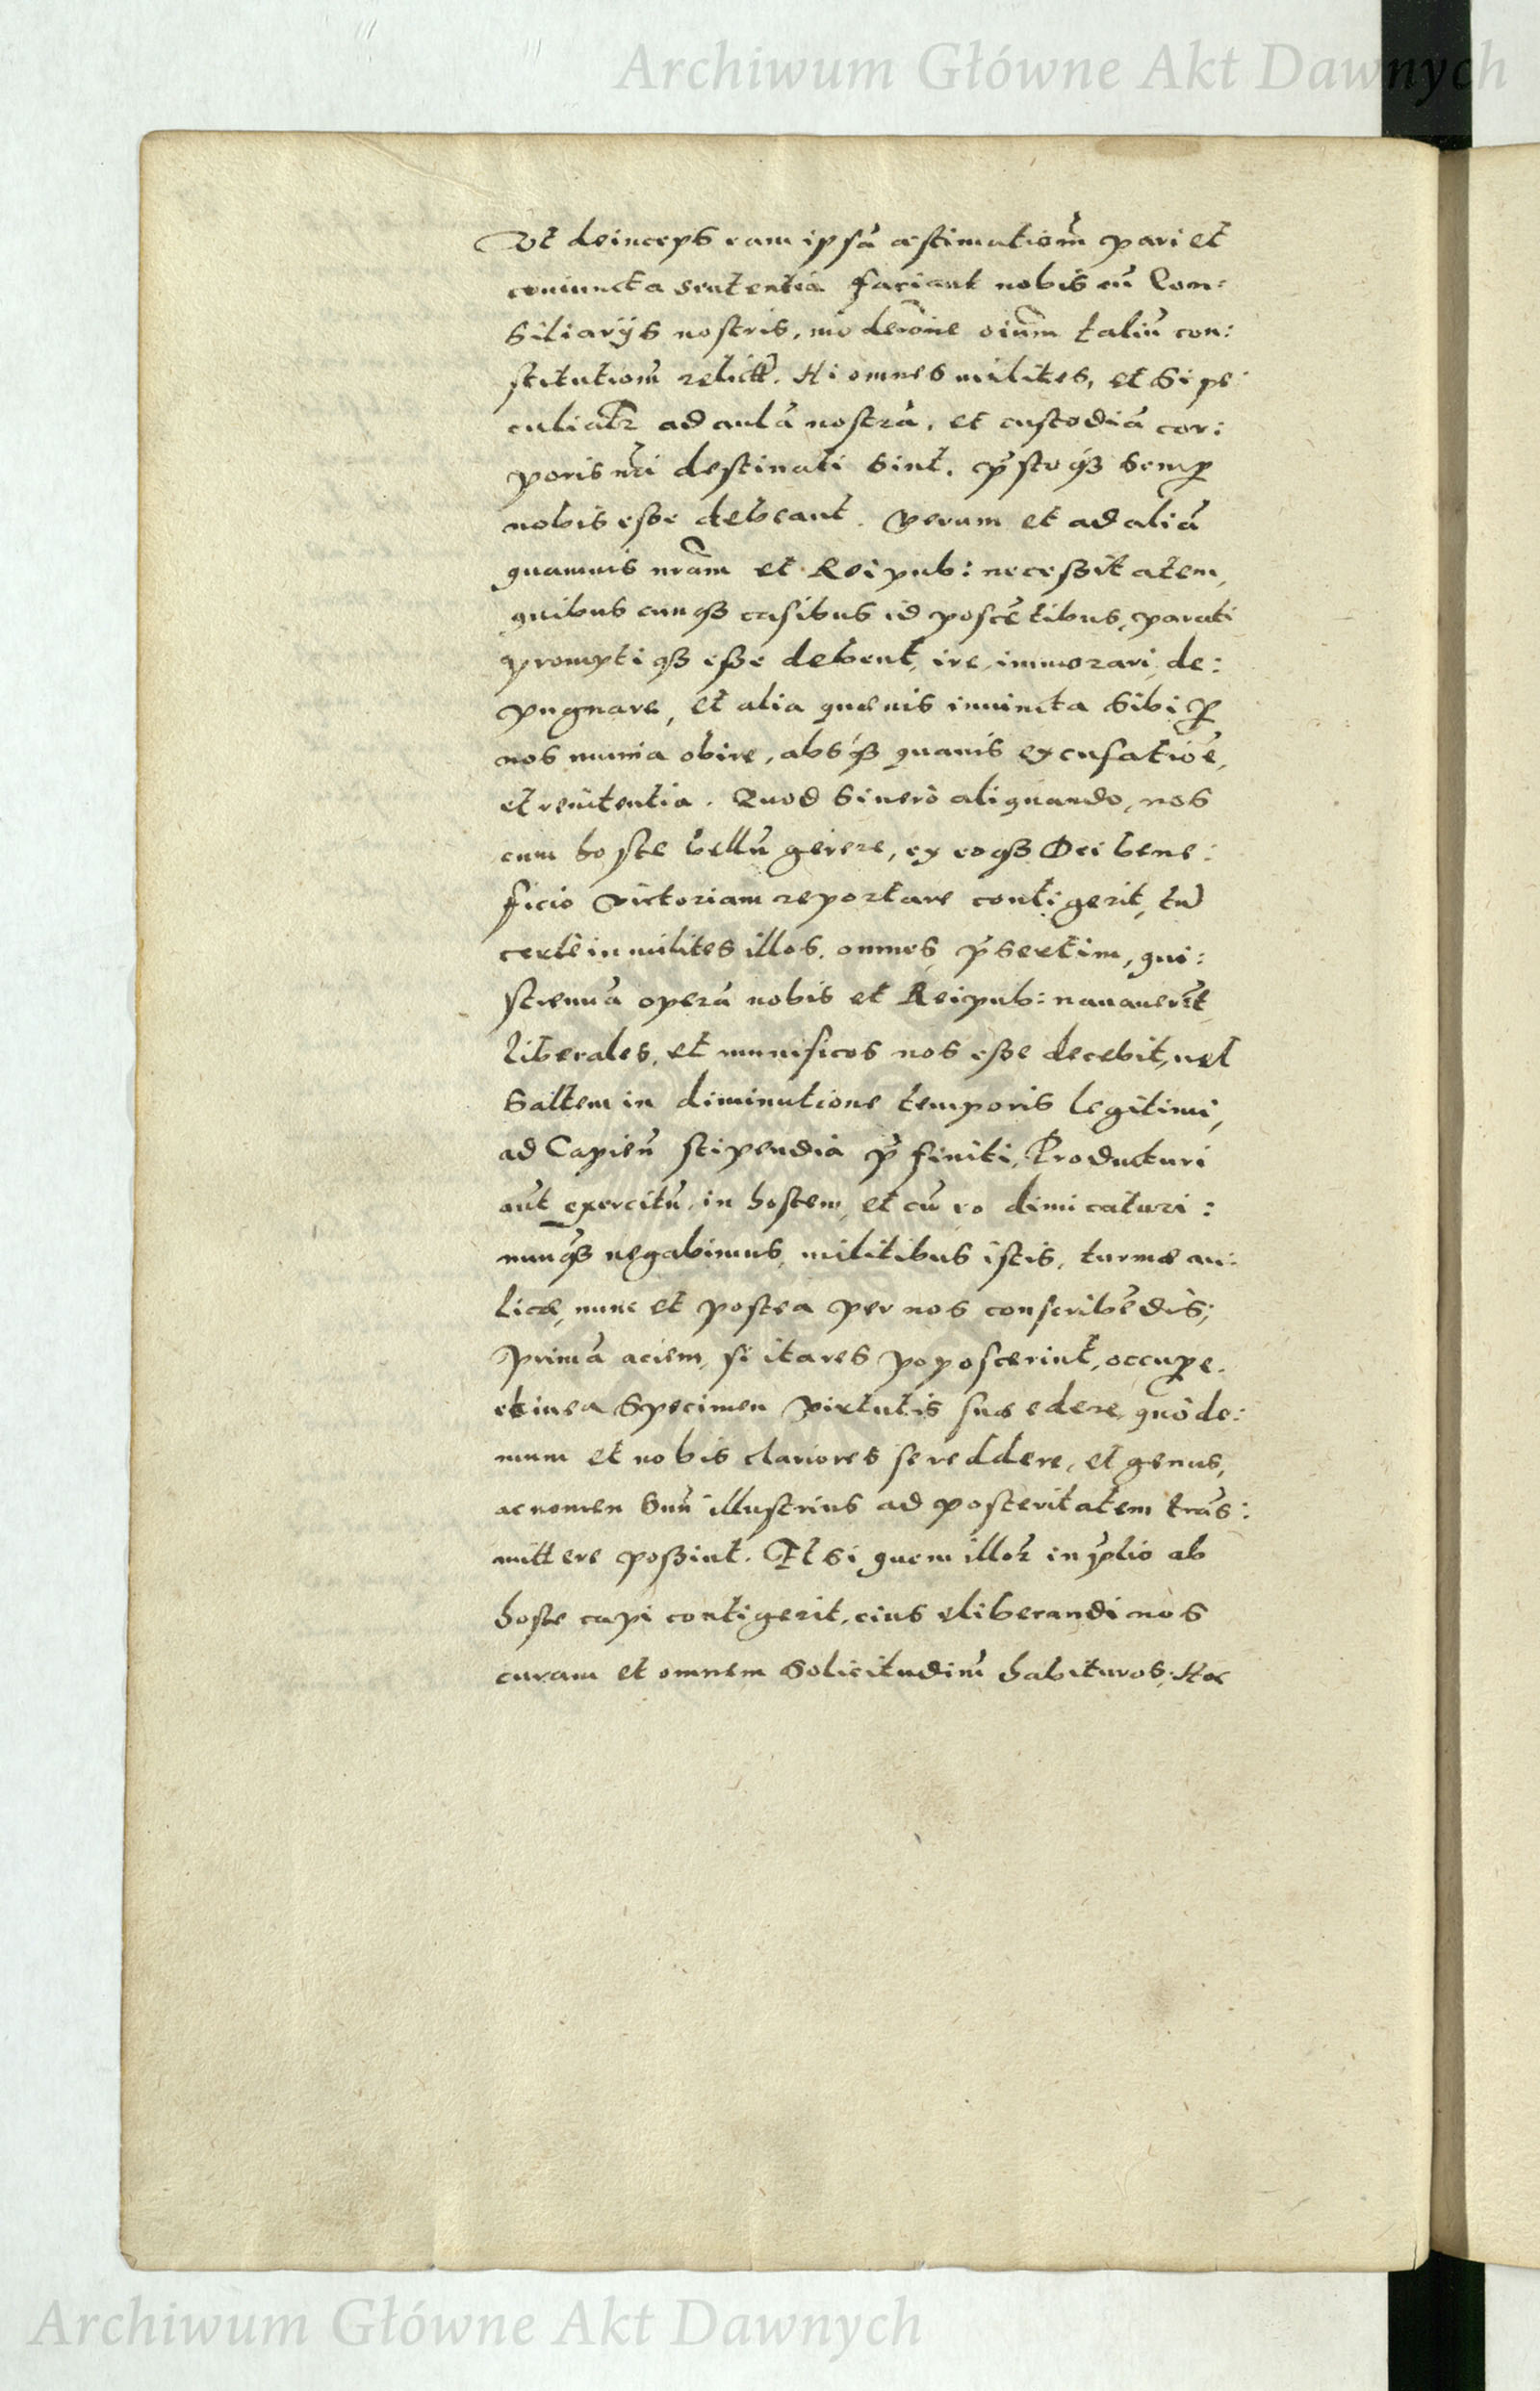 Archiwum Główne Akt Dawnych
Vt deinceps eam ipsā æstimationē pari et
coniuncta sententia faciant nobis cū Con:
siliarijs nostris, moderōne oiūm taliū con:
stitutionū relict. Hi omnes milites, et si pe
culiatr ad aulā nostrā, et custodiā cor:
poris nr̄i destinati sint, p̄stoq3 semp
nobis esse debeant. Verum et ad aliā
quamuis nrām et Reipub: necessitatem,
quibus cunq3 casibus id poscētibus, parati
promptiq3 esse debent, ire, immorari, de:
pugnare, et alia quæuis iniuncta sibi p
nos munia obire, absq3 quauis excusatiōe,
et renitentia. Quod si uerò aliquando, nos
cum hoste bellū gerere, ex eoq3 Dei bene:
ficio victoriam reportare contigerit, tū
certè in milites illos, omnes, p̄sertim, qui:
strenuā operā nobis et Reipub: nauauerīt,
liberales, et munificos nos esse decebit, uel
saltem in diminutione temporis legitimi,
ad Capien̄ stipendia p̄finiti, Producturi
aūt exercitū, in hostem, et cū eo dimicaturi:
nunq3 negabimus, militibus istis, turmæ au:
licæ, nunc et postea per nos conscribēdis,
primā aciem, si ita res poposcerint, occupe.
et in ea specimen virtutis suæ edere, quò de:
mum et nobis clariores se reddere, et genus,
ac nomen suū illustrius ad posteritatem trās:
mittere possint. Et si quem illor in p̄lio ab
hoste capi contigerit, eius eliberandi nos
curam et omnem solicitudinē habituros, Hoc
Archiwum Główne Akt Dawnych